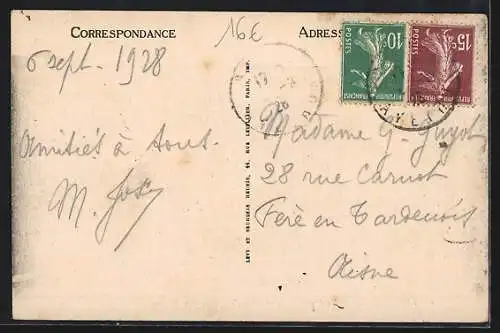 CORRESPONDANCE
16€
ADRES
6 sept. 1928
Amitiés à tous.
M. Josy
LEVY ET NEURDEIN RÉUNIS, 44, RUE LETELLIER, PARIS, IMP.
10c
POSTES
RÉPUBLIQUE FRANÇAISE
15c
POSTES
RÉPUBLIQUE FRANÇAISE
Madame G. Guyot
28 rue Carnot
Fère en Tardenois
Aisne